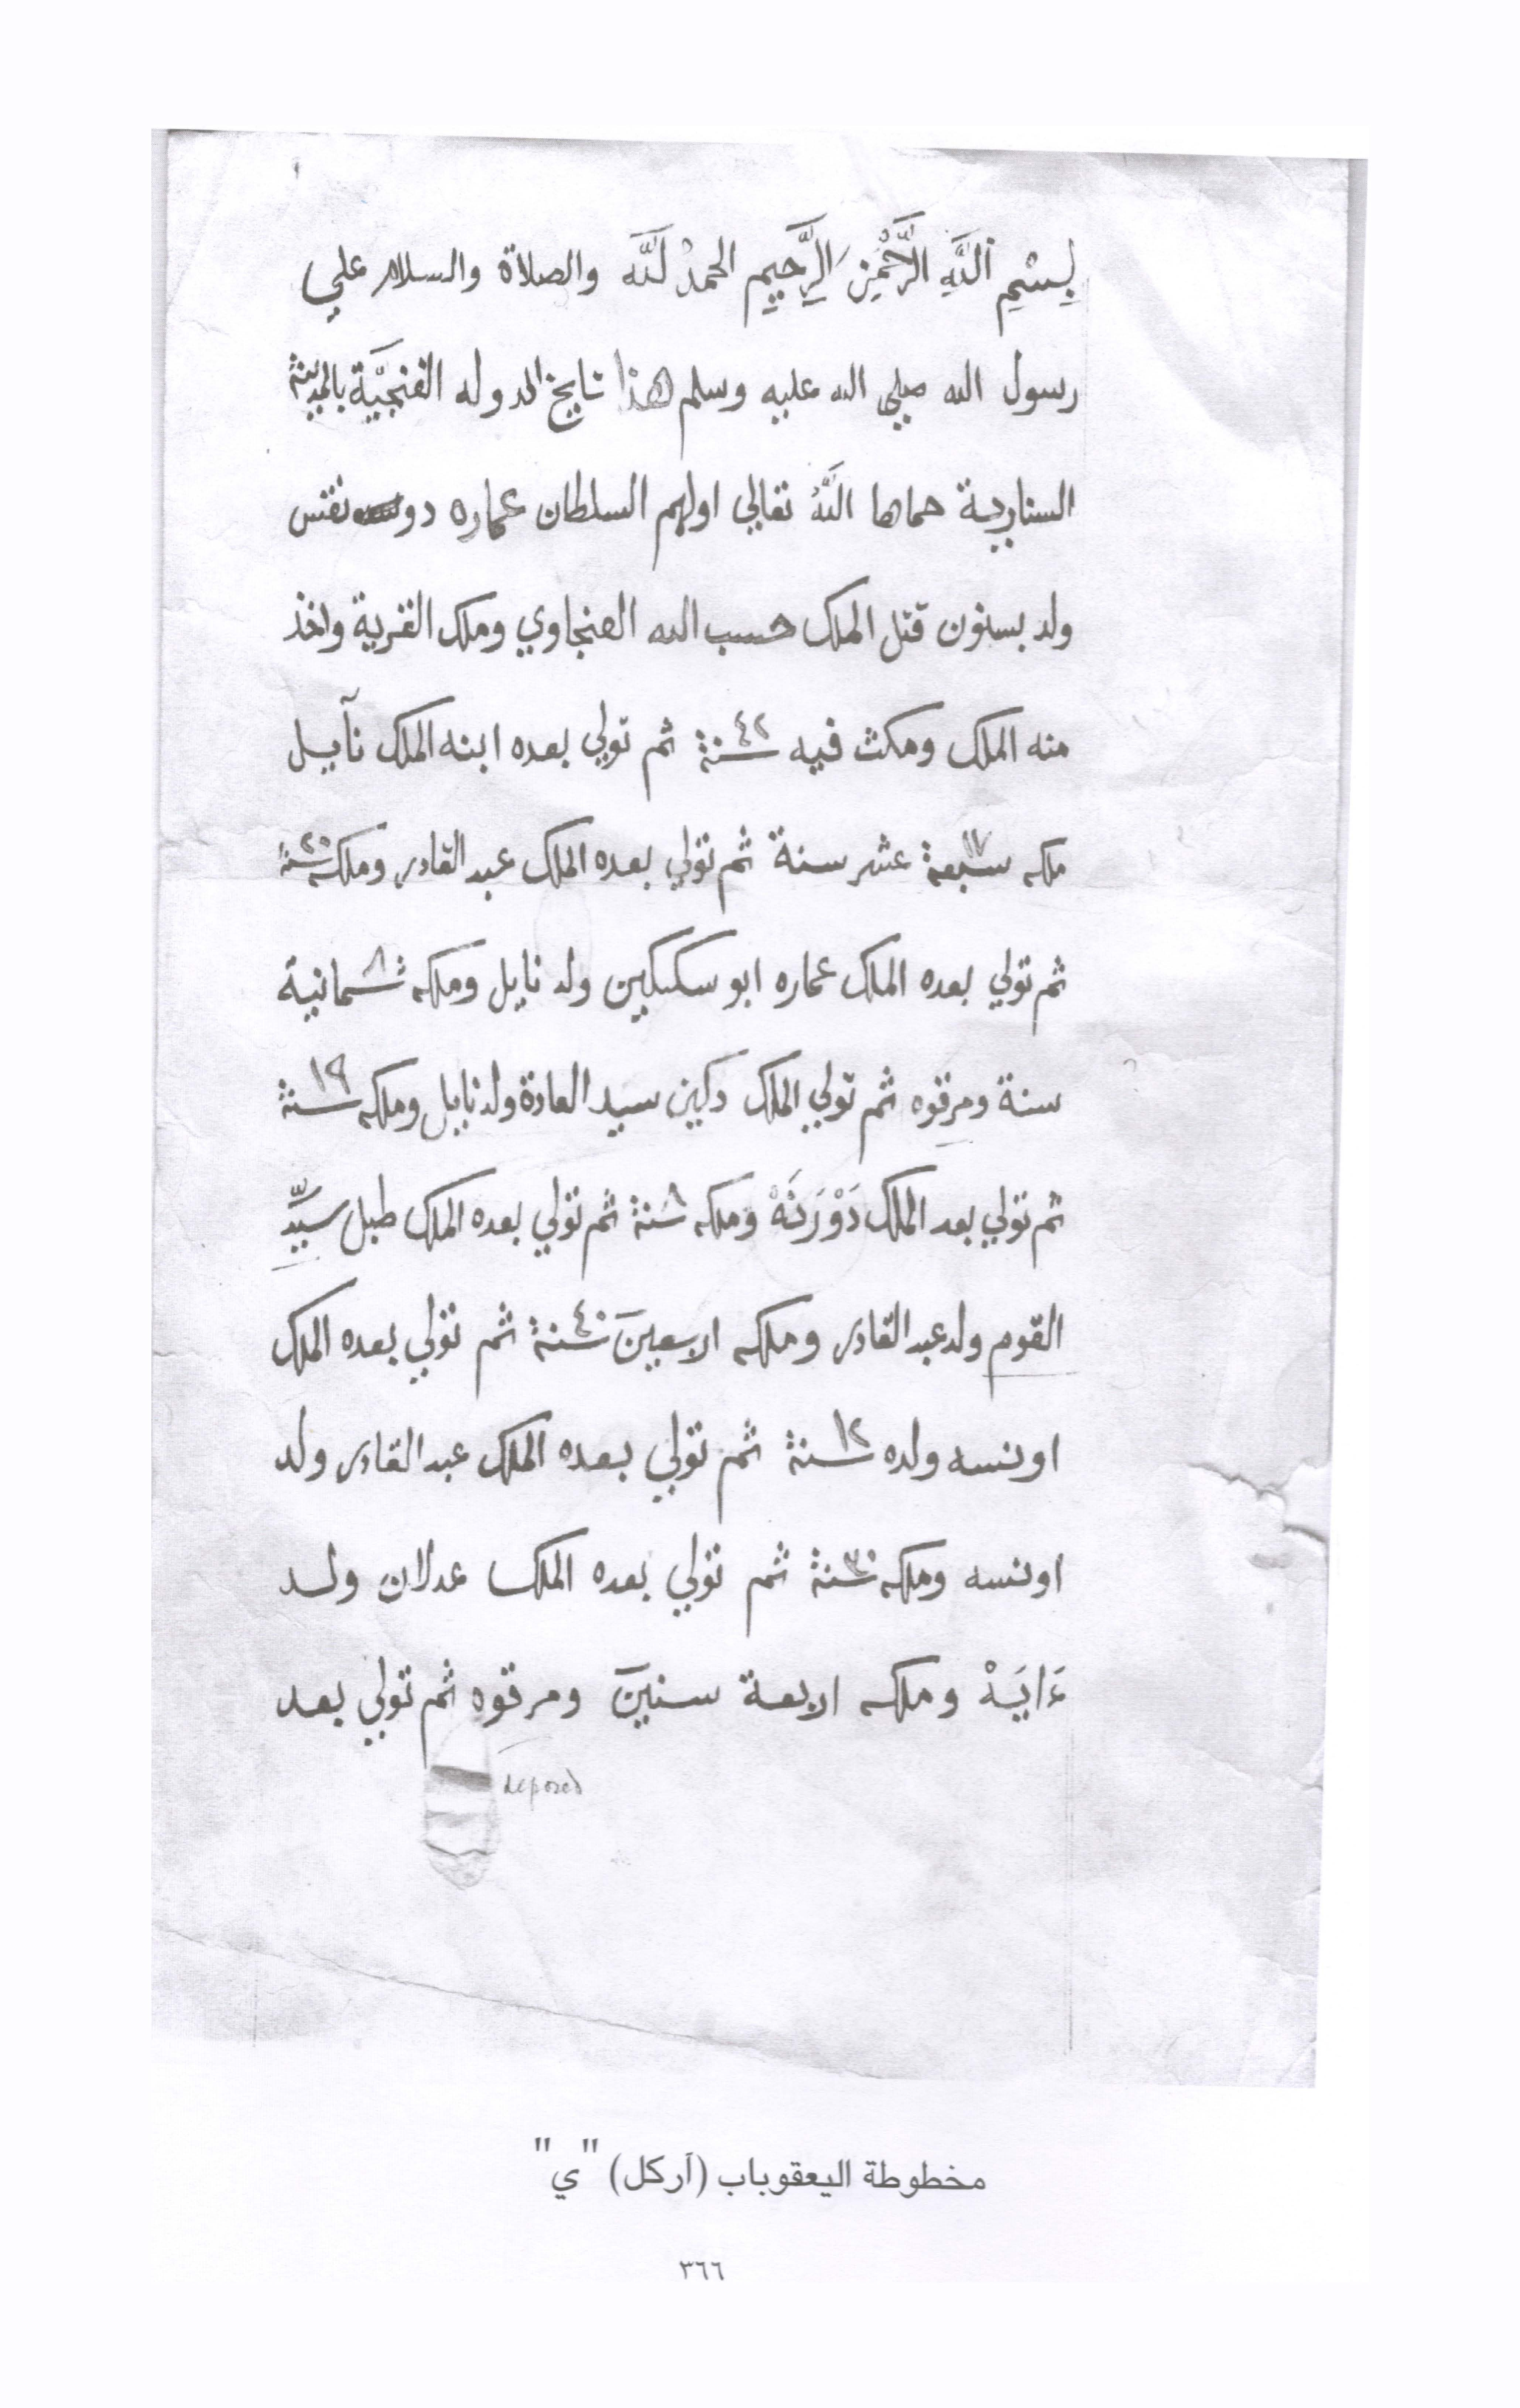 بِسْمِ ٱللَّهِ الرَّحْمٰنِ الرَّحِيمِ الحمدُ لَلَّه والصلاة والسلام علي
رسول الله صلي الله عليه وسلم هذا تايخ الدوله الفنجيَّة بالمدينة
السناريـة حماها اللَّهُ تعالي اولهم السلطان عماره دو نقس
ولد بسنون قتل الملك حسب الله العنجاوي وملك القرية واخذ
منه الملك ومكث فيه ٤٢ سنة ثم تولي بعده ابنه الملك نآيـل
ملكه سبعة ١٧ عشر سنة ثم تولي بعده الملك عبد القادر وملكه ٢٠ سنة
ثم تولي بعده الملك عماره ابو سكيكين ولد نايل وملكه ٨ ثـمانية
سنة ومرقوه ثم تولي الملك دكين سيد العادة ولد نايل وملكه ١٩ سنة
ثم تولي بعد الملك دَوْرَتَهْ وملكه ٨ سنة ثم تولي بعده الملك طبل سيِّد
القوم ولد عبد القادر وملكه اربعينَ ٤٠ سنة ثم تولي بعده الملك
اونسه ولده ١٢ سنة ثم تولي بعده الملك عبد القادر ولد
اونسه وملكه ٣٠ سنة ثم تولي بعده الملك عدلان ولد
ءَايَهْ وملكه اربعة سنينَ ومرقوه ثم تولي بعد
deposed
مخطوطة اليعقوباب (آركل) "ي"
٣٦٦